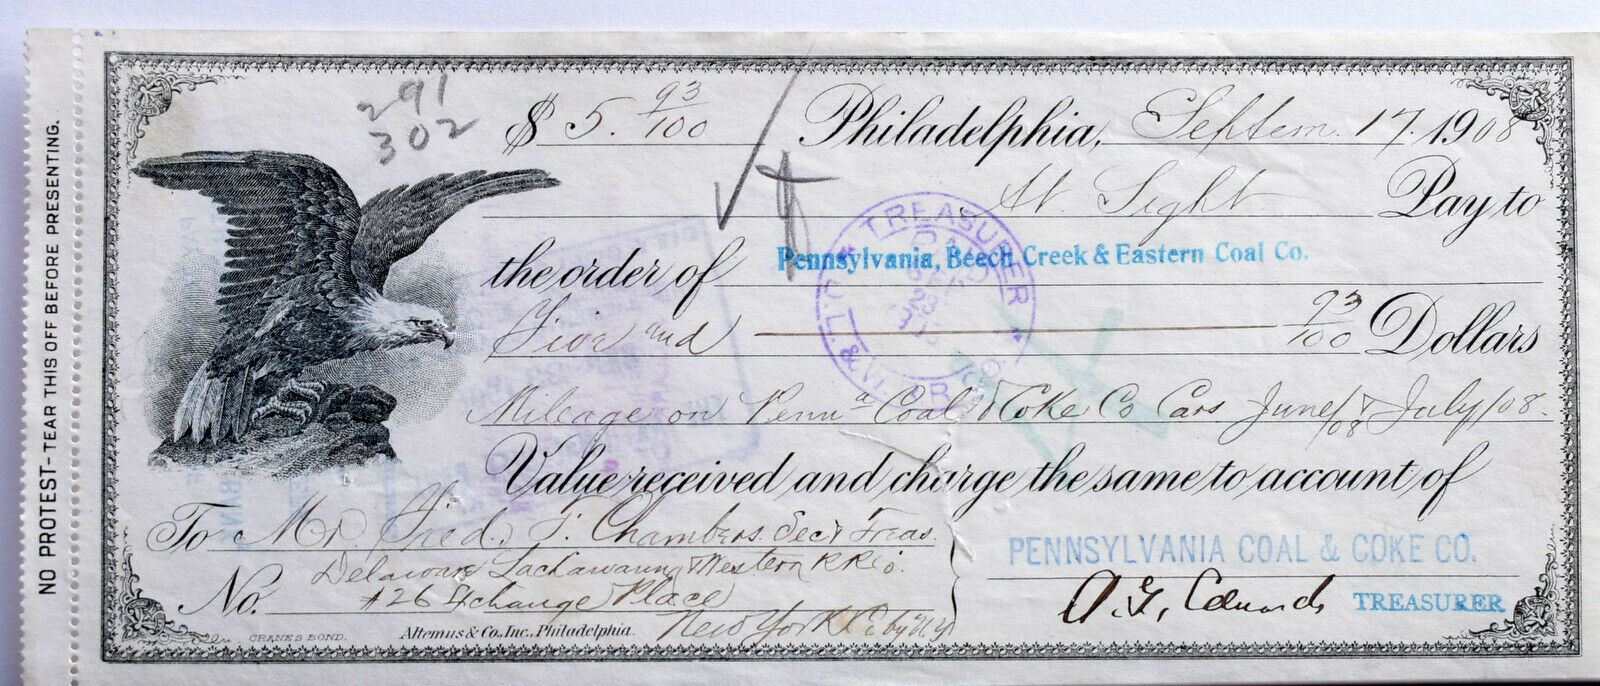 NO PROTEST - TEAR THIS OFF BEFORE PRESENTING.
291
302
$ 5. 93/100 Philadelphia, Septem. 17. 1908
At Sight Pay to
the order of Pennsylvania, Beech Creek & Eastern Coal Co.
Five and 93/100 Dollars
Mileage on Penna Coal & Coke Co Cars June/08 & July/08.
Value received and charge the same to account of
To Mr. Fred. F. Chambers. Sec & Treas.
Delaware Lackawanna Western RR Co.
No. 26 Exchange Place
New York City N.Y.
PENNSYLVANIA COAL & COKE CO.
A. G. Edwards TREASURER
CRANE'S BOND.
Altemus & Co., Inc., Philadelphia.
TREASURER